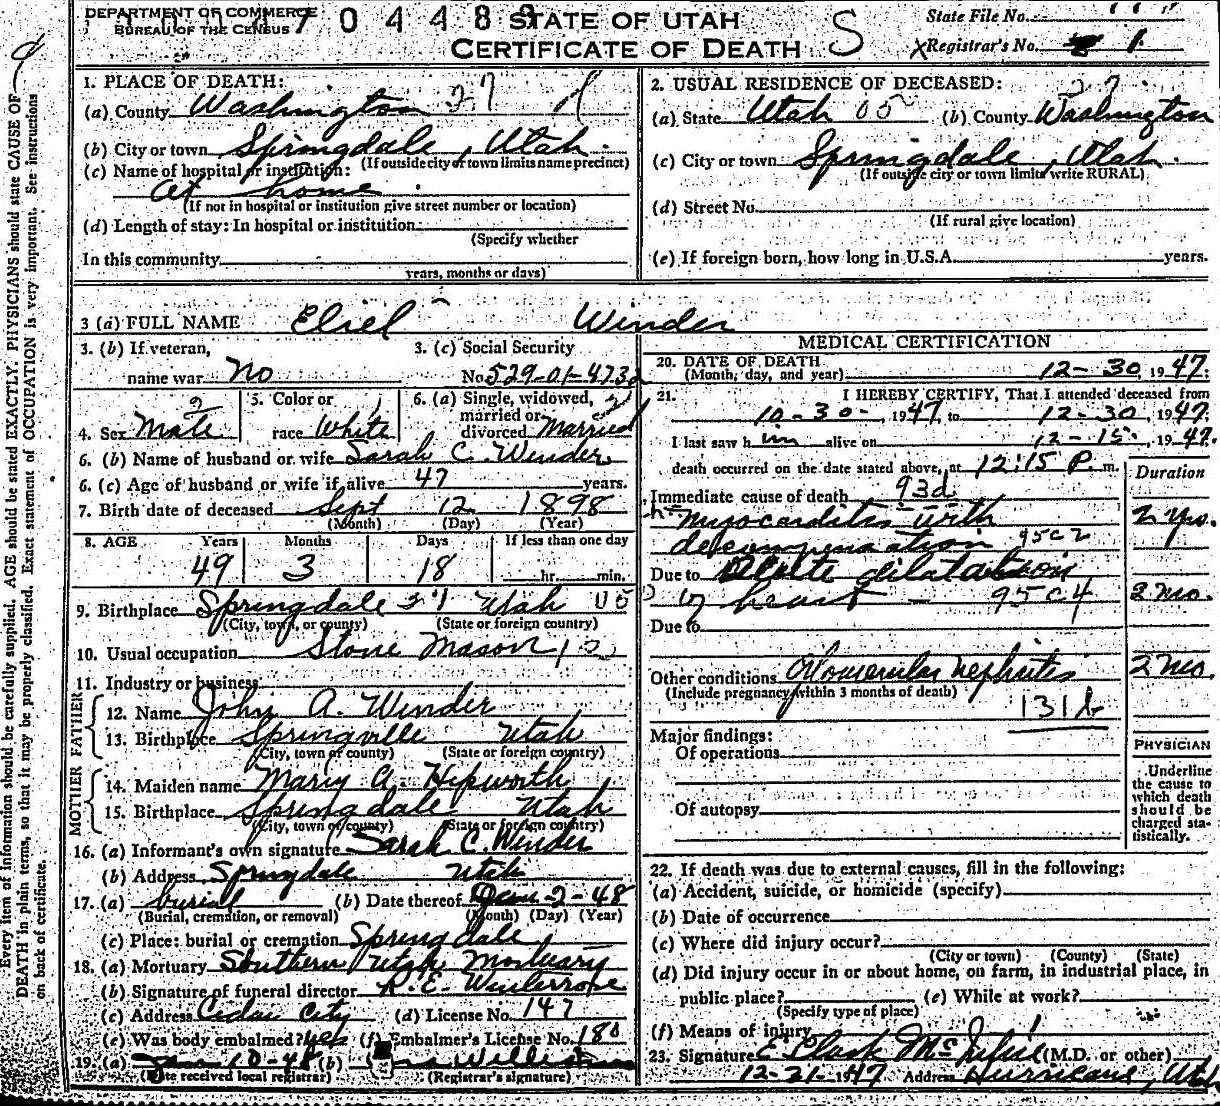 DEPARTMENT OF COMMERCE
BUREAU OF THE CENSUS
7 0 4 4 8
STATE OF UTAH
CERTIFICATE OF DEATH
S
State File No.
Registrar's No. 1
1. PLACE OF DEATH:
(a) County Washington 27
(b) City or town Springdale, Utah.
(If outside city or town limits name precinct)
(c) Name of hospital or institution:
at home
(If not in hospital or institution give street number or location)
(d) Length of stay: In hospital or institution
(Specify whether
In this community
years, months or days)
2. USUAL RESIDENCE OF DECEASED: 27
(a) State Utah 05 (b) County Washington
(c) City or town Springdale, Utah.
(If outside city or town limits write RURAL)
(d) Street No.
(If rural give location)
(e) If foreign born, how long in U.S.A. years.
3 (a) FULL NAME Eliel Winder
3. (b) If veteran,
name war No
3. (c) Social Security
No. 529-01-473
4. Sex Male
5. Color or
race White
6. (a) Single, widowed,
married or
divorced Married
6. (b) Name of husband or wife Sarah C. Winder
6. (c) Age of husband or wife if alive 47 years.
7. Birth date of deceased Sept 12 1898
(Month) (Day) (Year)
8. AGE Years Months Days If less than one day
49 3 18 hr. min.
9. Birthplace Springdale 27 Utah 05
(City, town, or county) (State or foreign country)
10. Usual occupation Stone Mason
11. Industry or business
FATHER
12. Name John A. Winder
13. Birthplace Springville Utah
(City, town or county) (State or foreign country)
MOTHER
14. Maiden name Mary A. Hepworth
15. Birthplace Springdale Utah
(City, town or county) (State or foreign country)
16. (a) Informant's own signature Sarah C. Winder
(b) Address Springdale Utah
17. (a) burial (b) Date thereof Jan-2-48
(Burial, cremation, or removal) (Month) (Day) (Year)
(c) Place: burial or cremation Springdale
18. (a) Mortuary Southern Utah Mortuary
(b) Signature of funeral director R.E. Winterrose
(c) Address Cedar City (d) License No. 147
(e) Was body embalmed? yes (f) Embalmer's License No. 180
19. (a) Jan 10-48 (b)
(Date received local registrar) (Registrar's signature)
MEDICAL CERTIFICATION
20. DATE OF DEATH
(Month, day, and year) 12-30, 1947.
21. I HEREBY CERTIFY, That I attended deceased from
10-30-, 1947, to 12-30 1947.
I last saw him alive on 12-15, 1947.
death occurred on the date stated above, at 12:15 P. m.
Duration
Immediate cause of death 93d
myocarditis with 2 yrs.
decompensation 95c2
Due to Acute dilatation
of heart - 95c4 2 mo.
Due to
Other conditions Glomerular nephritis 2 mo.
(Include pregnancy within 3 months of death)
131b
Major findings:
Of operations
Of autopsy
PHYSICIAN
Underline
the cause to
which death
should be
charged sta-
tistically.
22. If death was due to external causes, fill in the following:
(a) Accident, suicide, or homicide (specify)
(b) Date of occurrence
(c) Where did injury occur?
(City or town) (County) (State)
(d) Did injury occur in or about home, on farm, in industrial place, in
public place? (e) While at work?
(Specify type of place)
(f) Means of injury
23. Signature (M.D. or other)
12-31-1947 Address Hurricane, Utah
Every item of information should be carefully supplied. AGE should be stated EXACTLY. PHYSICIANS should state CAUSE OF
DEATH in plain terms, so that it may be properly classified. Exact statement of OCCUPATION is very important. See instructions
on back of certificate.